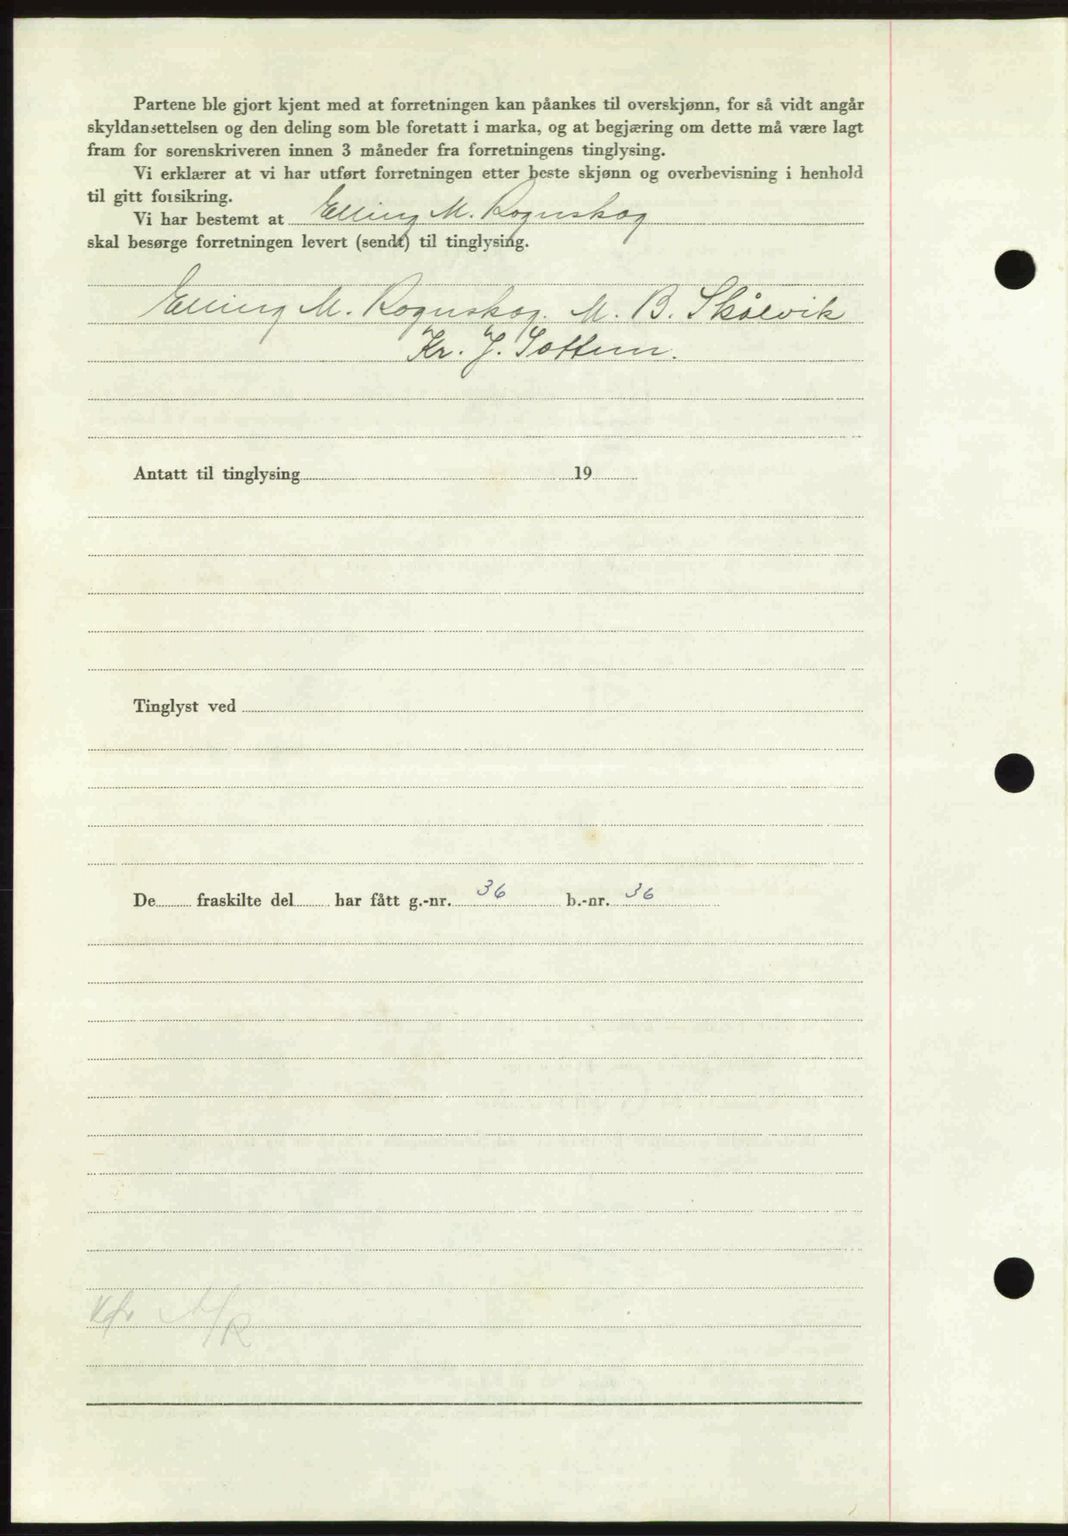 Partene ble gjort kjent med at forretningen kan påankes til overskjønn, for så vidt angår
skyldansettelsen og den deling som ble foretatt i marka, og at begjæring om dette må være lagt
fram for sorenskriveren innen 3 måneder fra forretningens tinglysing.
Vi erklærer at vi har utført forretningen etter beste skjønn og overbevisning i henhold
til gitt forsikring.
Vi har bestemt at Elling M. Rognskog
skal besørge forretningen levert (sendt) til tinglysing.
Elling M. Rognskog. M. B. Skålvik
Kr. J. Tottem.
Antatt til tinglysing 19
Tinglyst ved
De fraskilte del har fått g.-nr. 36 b.-nr. 36